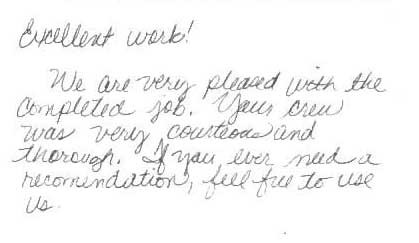 Excellent work!
We are very pleased with the
completed job. Your crew
was very courteous and
thorough. If you ever need a
recomendation, fell free to use
us.